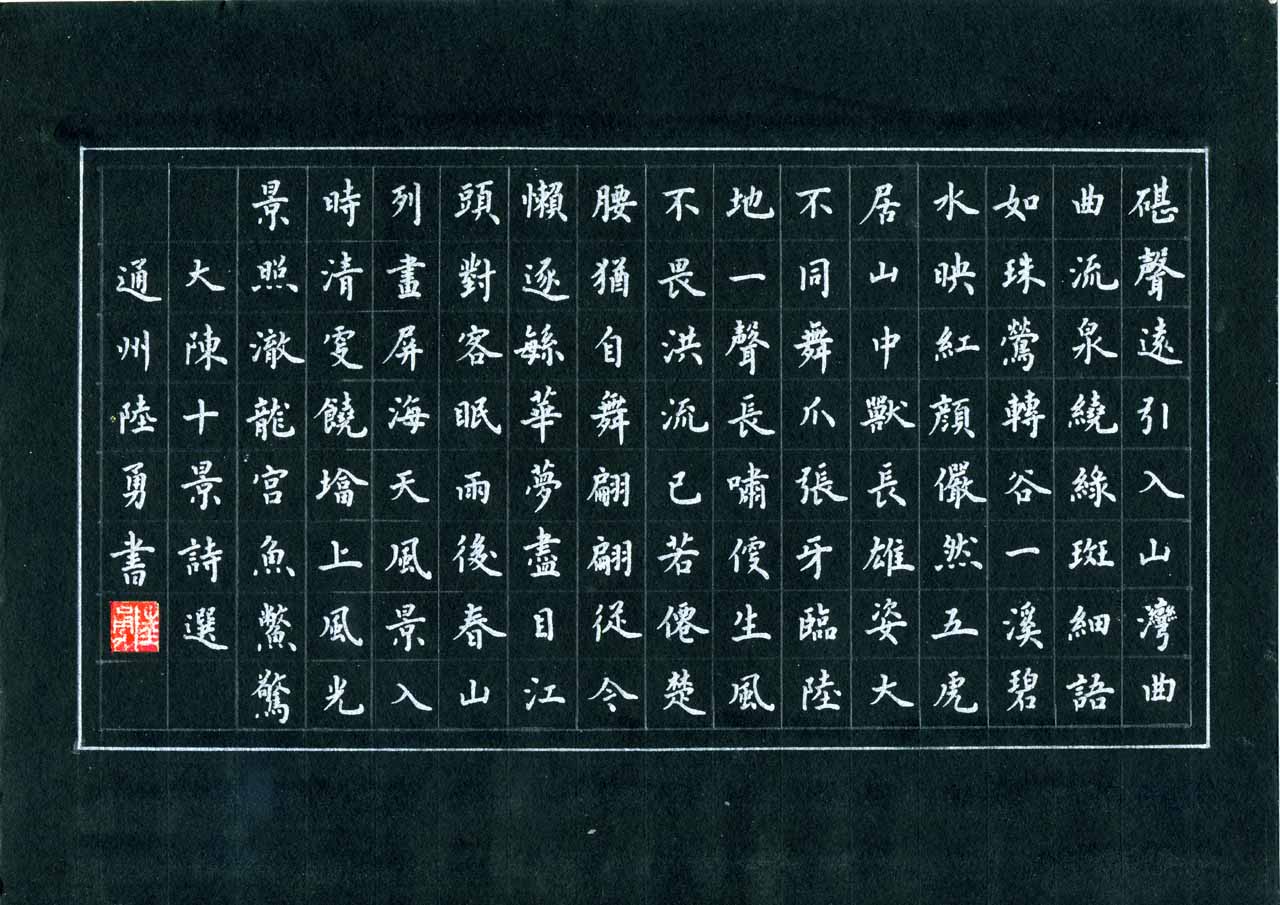 碪聲遠引入山灣曲
曲流泉繞綠斑細語
如珠鶯轉谷一溪碧
水映紅顏儼然五虎
居山中獸長雄姿大
不同舞爪張牙臨陸
地一聲長嘯便生風
不畏洪流已若僊楚
腰猶自舞翩翩從今
懶逐繇華夢盡目江
頭對客眠雨後春山
列畫屏海天風景入
時清雯饒墖上風光
景照澈龍宮魚鱉驚
大陳十景詩選
通州陸勇書
陸勇